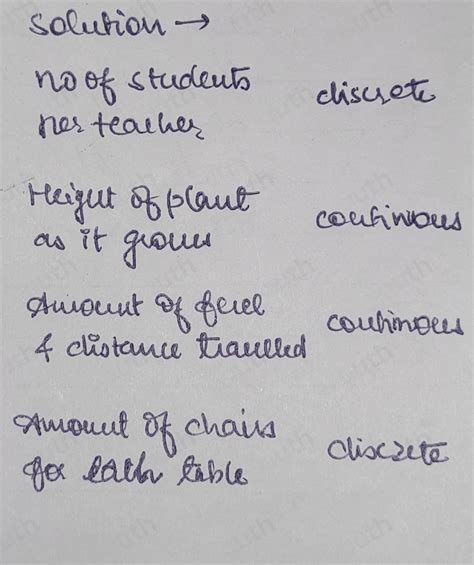 Solution →
no of students discrete
per teacher
Height of plant continuous
as it grows
Amount of fuel continuous
& distance travelled
Amount of chairs discrete
for each table